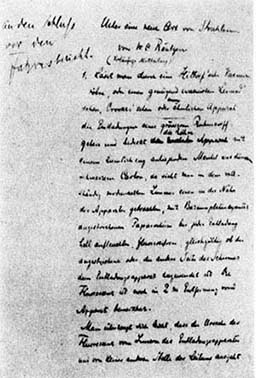 An den Schluss
vor den
Jahresbericht.
Ueber eine neue Art von Strahlen
von W. C. Röntgen
(Vorläufige Mittheilung)
1. Lässt man durch eine Hittorf'sche Vacuum-
röhre, oder einen genügend evacuirten Lenard'
schen, Crookes'schen oder ähnlichen Apparat
die Entladungen eines grösseren Ruhmkorff's
gehen und bedeckt die Röhre mit
einem ziemlich eng anliegenden Mantel aus dünnem,
schwarzem Carton, so sieht man in dem voll-
ständig verdunkelten Zimmer einen in die Nähe
des Apparates gebrachten, mit Bariumplatincyanür
angestrichenen Papierschirm bei jeder Entladung
hell aufleuchten, fluoresciren, gleichgültig ob die
angestrichene oder die andere Seite des Schirmes
dem Entladungsapparat zugewendet ist. Die
Fluorescenz ist noch in 2 m Entfernung vom
Apparat bemerkbar.
Man überzeugt sich leicht, dass die Ursache der
Fluorescenz vom Innern des Entladungsapparates
und von keiner anderen Stelle der Leitung ausgeht